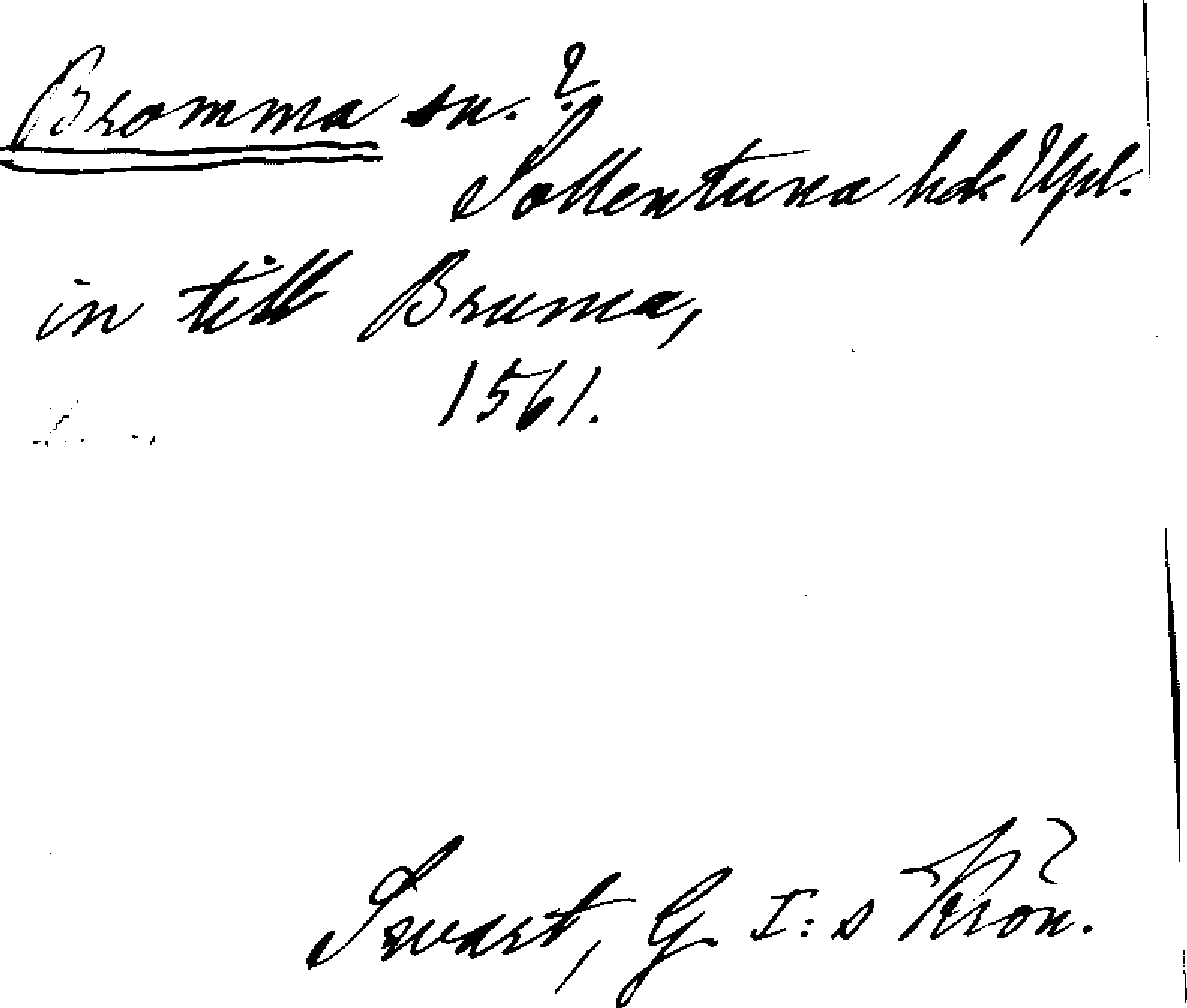 Bromma sn. ?
Sollentuna hd. Upl.
in till Bruma,
1561.
Swart, G I:s Krön.